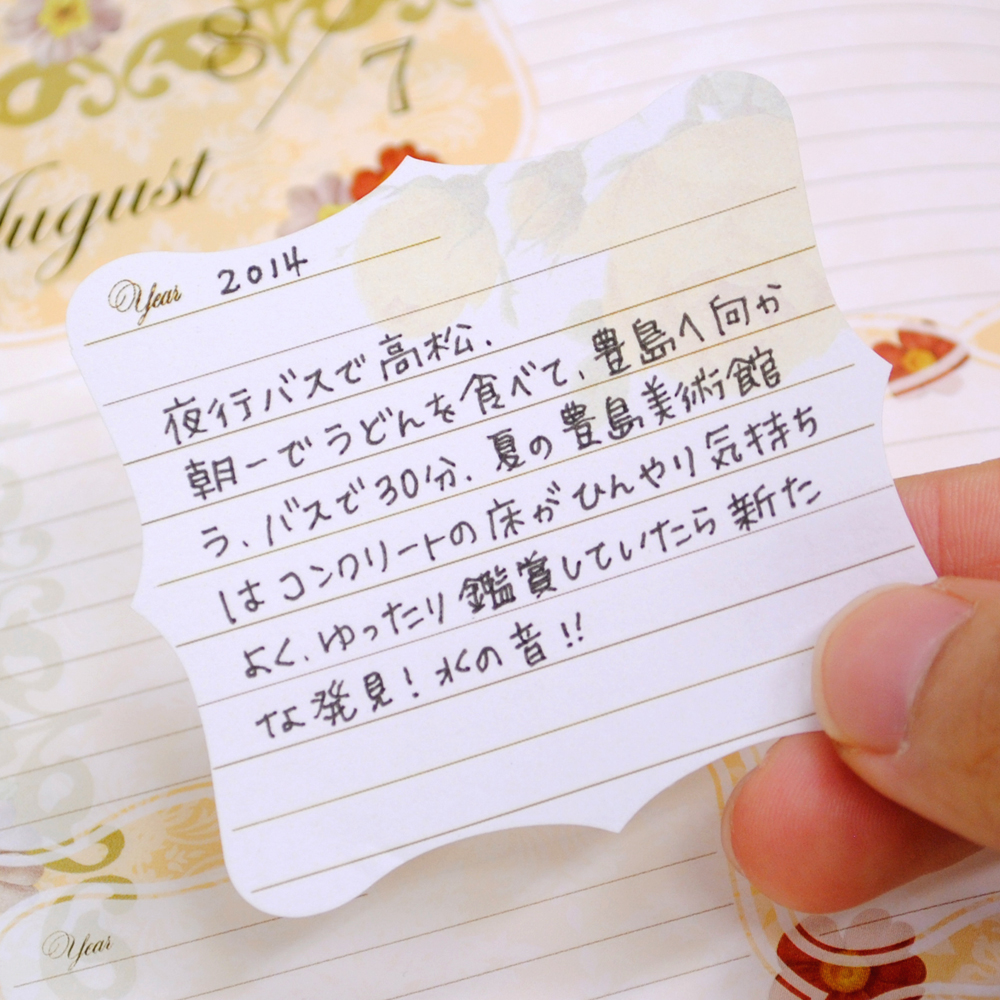 8/7
August
Year 2014
夜行バスで高松、
朝一でうどんを食べて、豊島へ向か
う、バスで30分、夏の豊島美術館
はコンクリートの床がひんやり気持ち
よく、ゆったり鑑賞していたら新た
な発見！水の音!!
Year